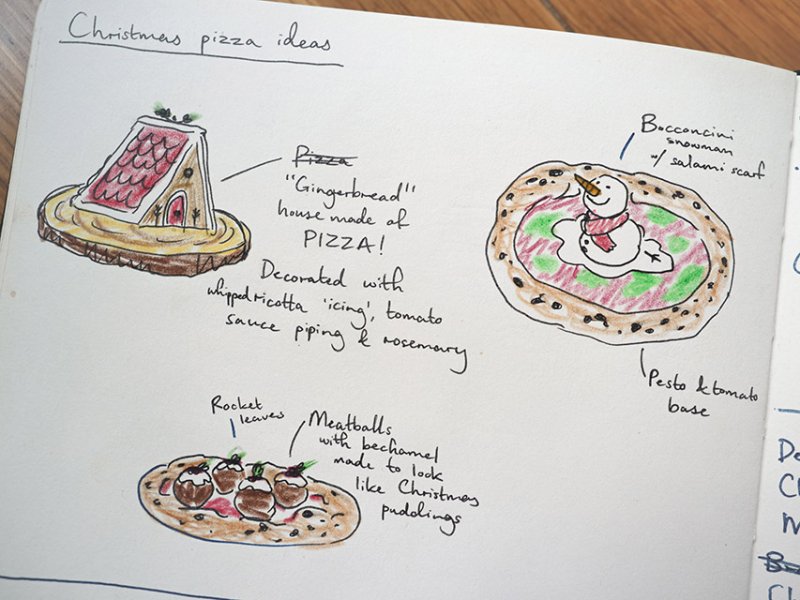 Christmas pizza ideas
Pizza
"Gingerbread"
house made of
PIZZA!
Decorated with
whipped ricotta 'icing', tomato
sauce piping & rosemary
Bocconcini
snowman
w/ salami scarf
Pesto & tomato
base
Rocket
leaves
Meatballs
with bechamel
made to look
like Christmas
puddings